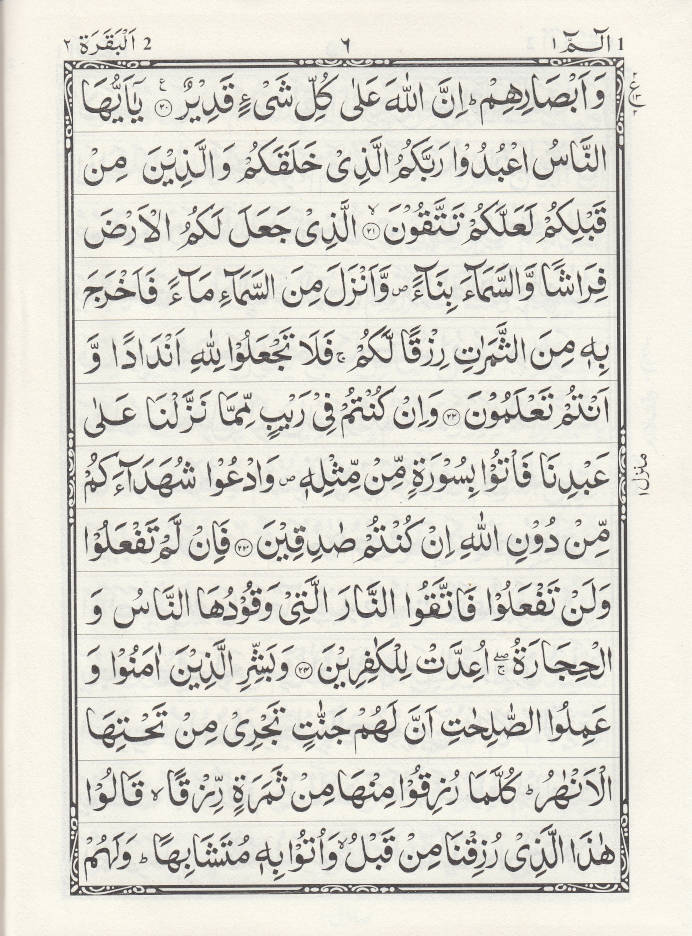 1 الٓمّٓ ١ ٦ 2 اَلْبَقَرَة ٢
وَاَبْصَارِهِمْ ؕ اِنَّ اللّٰهَ عَلٰى كُلِّ شَىْءٍ قَدِيْرٌ ۧ ﴿۲۰﴾ يٰۤاَيُّهَا
النَّاسُ اعْبُدُوْا رَبَّكُمُ الَّذِىْ خَلَقَكُمْ وَالَّذِيْنَ مِنْ
قَبْلِكُمْ لَعَلَّكُمْ تَتَّقُوْنَ ۙ ﴿۲۱﴾ الَّذِىْ جَعَلَ لَكُمُ الْاَرْضَ
فِرَاشًا وَّالسَّمَآءَ بِنَآءً ۪ وَّاَنْزَلَ مِنَ السَّمَآءِ مَآءً فَاَخْرَجَ
بِهٖ مِنَ الثَّمَرٰتِ رِزْقًا لَّكُمْ ۚ فَلَا تَجْعَلُوْا لِلّٰهِ اَنْدَادًا وَّ
اَنْتُمْ تَعْلَمُوْنَ ﴿۲۲﴾ وَاِنْ كُنْتُمْ فِىْ رَيْبٍ مِّمَّا نَزَّلْنَا عَلٰى
عَبْدِنَا فَاْتُوْا بِسُوْرَةٍ مِّنْ مِّثْلِهٖ ۪ وَادْعُوْا شُهَدَآءَكُمْ
مِّنْ دُوْنِ اللّٰهِ اِنْ كُنْتُمْ صٰدِقِيْنَ ﴿۲۳﴾ فَاِنْ لَّمْ تَفْعَلُوْا
وَلَنْ تَفْعَلُوْا فَاتَّقُوا النَّارَ الَّتِىْ وَقُوْدُهَا النَّاسُ وَ
الْحِجَارَةُ ۖۚ اُعِدَّتْ لِلْكٰفِرِيْنَ ﴿۲۴﴾ وَبَشِّرِ الَّذِيْنَ اٰمَنُوْا وَ
عَمِلُوا الصّٰلِحٰتِ اَنَّ لَهُمْ جَنّٰتٍ تَجْرِىْ مِنْ تَحْتِهَا
الْاَنْهٰرُ ؕ كُلَّمَا رُزِقُوْا مِنْهَا مِنْ ثَمَرَةٍ رِّزْقًا ۙ قَالُوْا
هٰذَا الَّذِىْ رُزِقْنَا مِنْ قَبْلُ ۙ وَاُتُوْا بِهٖ مُتَشَابِهًا ؕ وَلَهُمْ
منزل ١